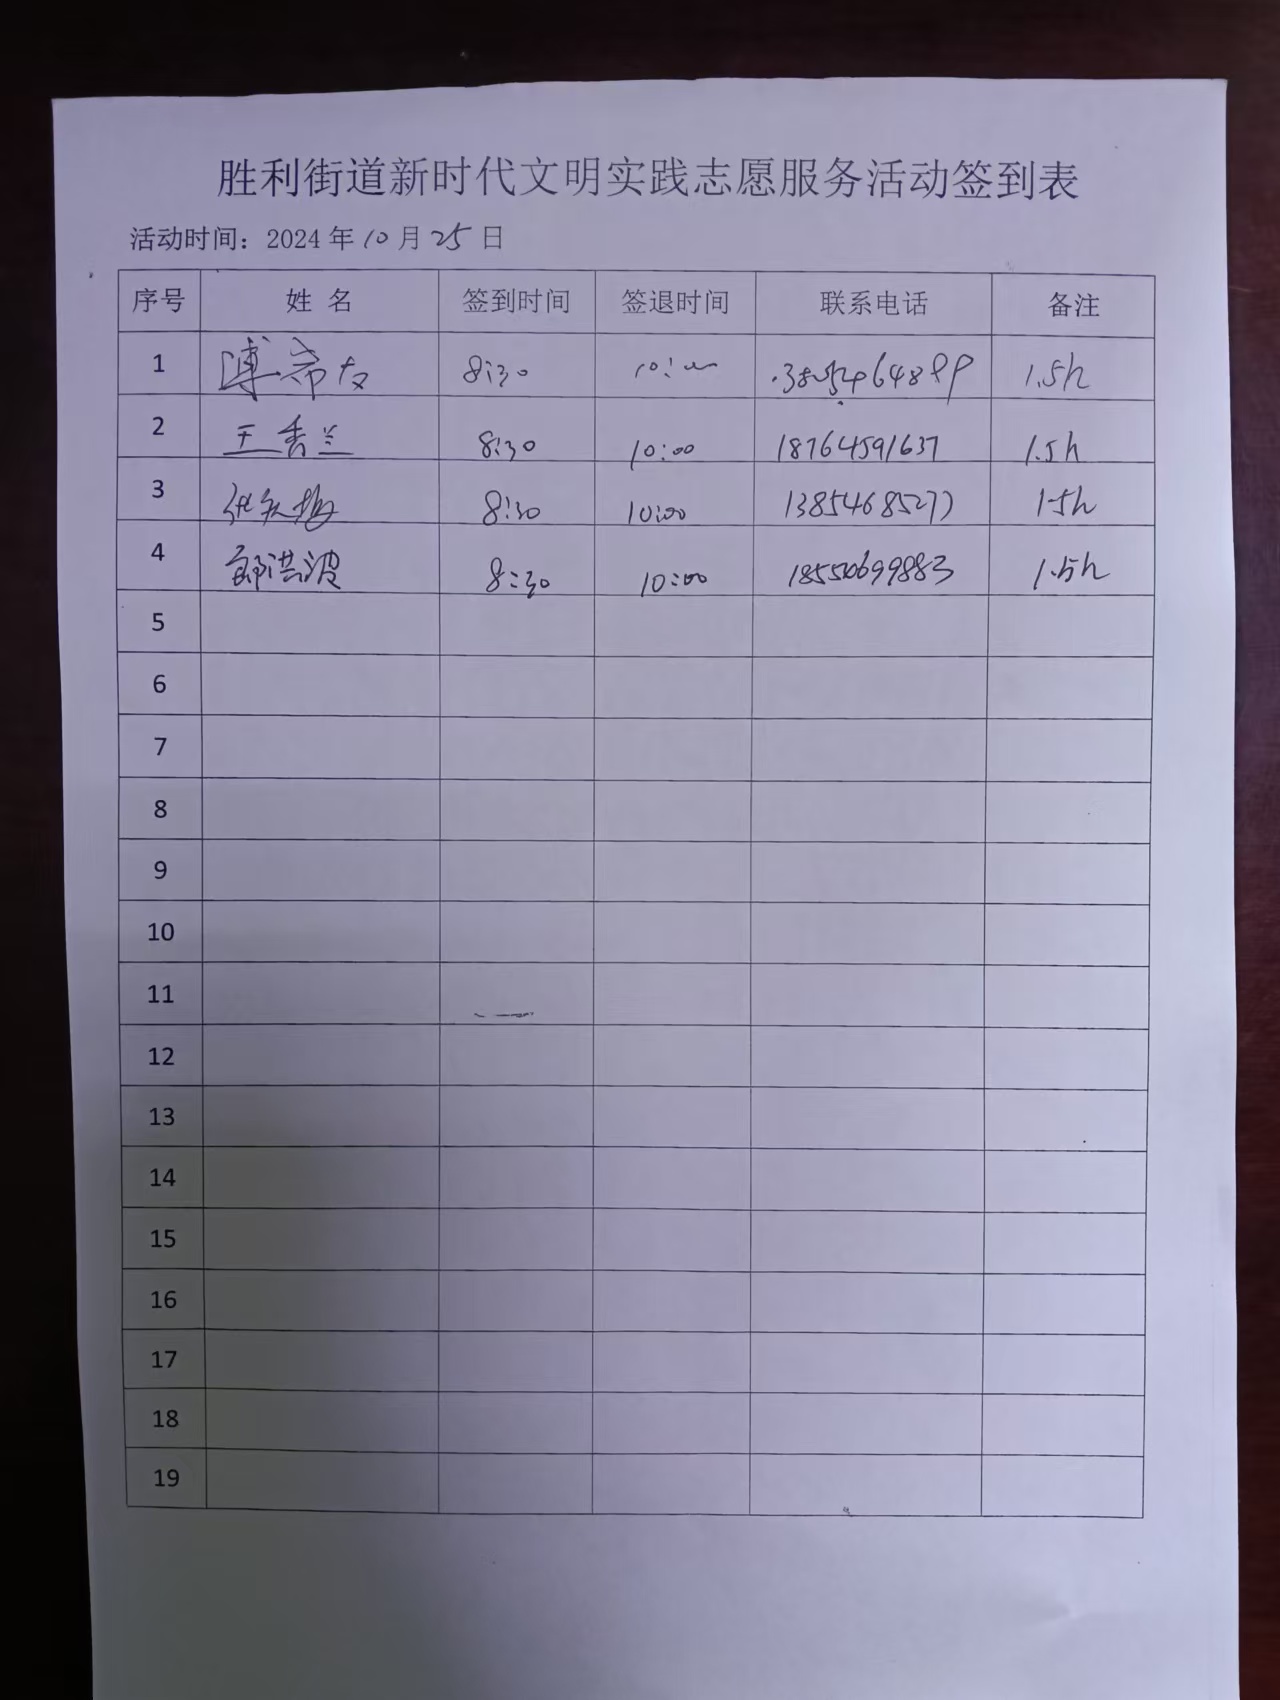 胜利街道新时代文明实践志愿服务活动签到表
活动时间：2024年10月25日
序号 姓 名 签到时间 签退时间 联系电话 备注
1 8:30 10:00 1.5h
2 王秀兰 8:30 10:00 18764591637 1.5h
3 8:30 10:00 13854685277 1.5h
4 郭洪波 8:30 10:00 18550699883 1.5h
5
6
7
8
9
10
11
12
13
14
15
16
17
18
19